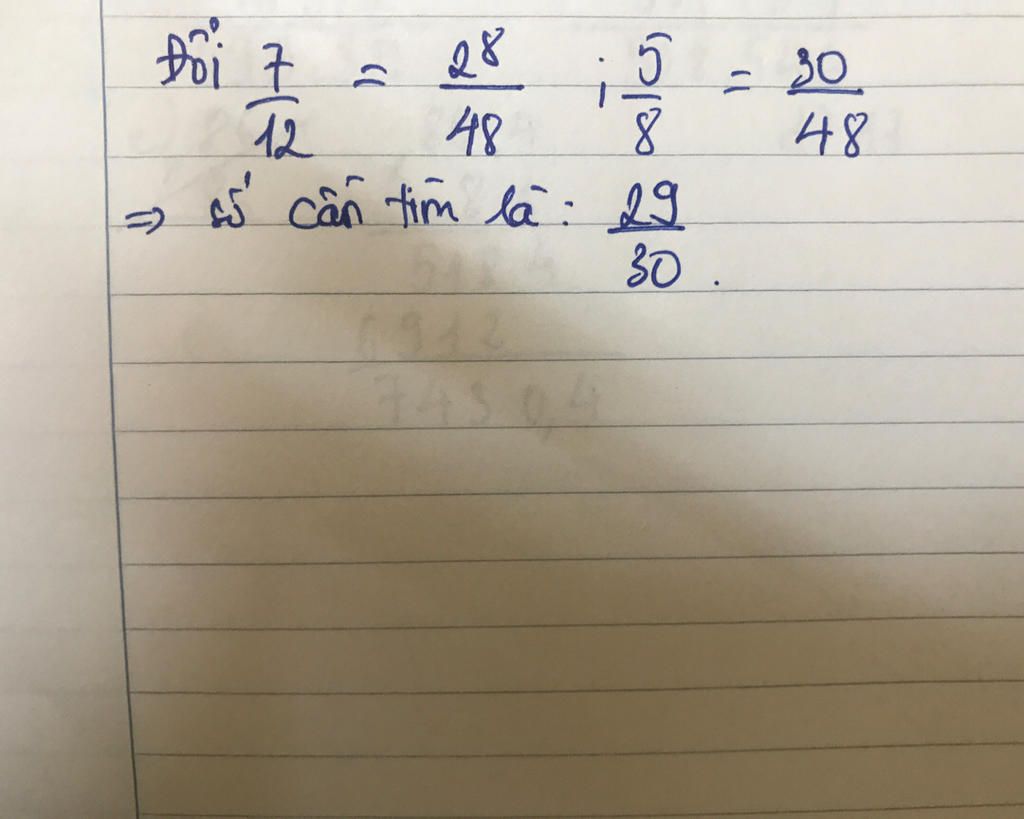 Đổi 7/12 = 28/48 ; 5/8 = 30/48
=> số cần tìm là: 29/30.